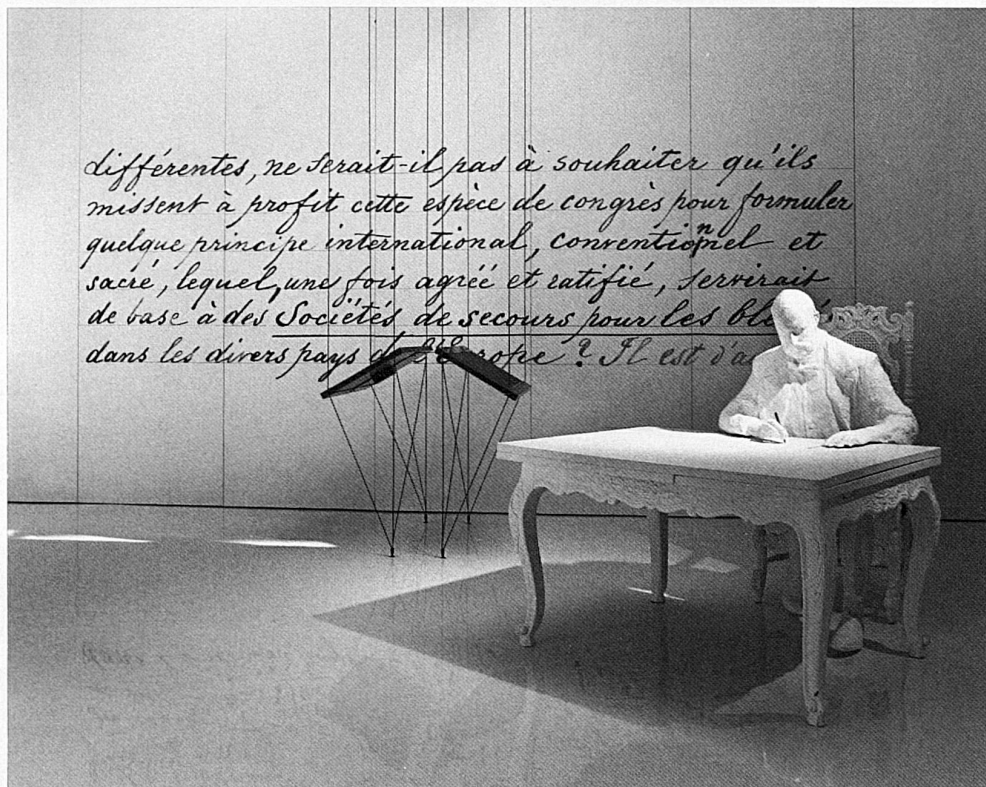 différentes, ne serait-il pas à souhaiter qu'ils
missent à profit cette espèce de congrès pour formuler
quelque principe international, conventionnel et
sacré, lequel, une fois agréé et ratifié, servirait
de base à des Sociétés de secours pour les
dans les divers pays ? Il est